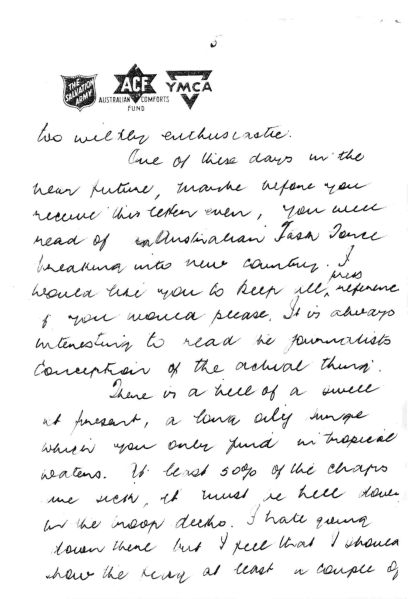 5
THE SALVATION ARMY
ACF
AUSTRALIAN COMFORTS FUND
YMCA
too wildly enthusiastic.
One of these days in the
near future, maybe before you
receive this letter even, you will
read of an Australian Task Force
breaking into new country. I
would like you to keep all press reference
if you would please. It is always
interesting to read the journalists
conception of the actual thing.
There is a hell of a swell
at present, a long oily surge
which you only find in tropical
waters. At least 50% of the chaps
are sick, it must be hell down
in the troop decks. I hate going
down there but I feel that I should
show the at least a couple of